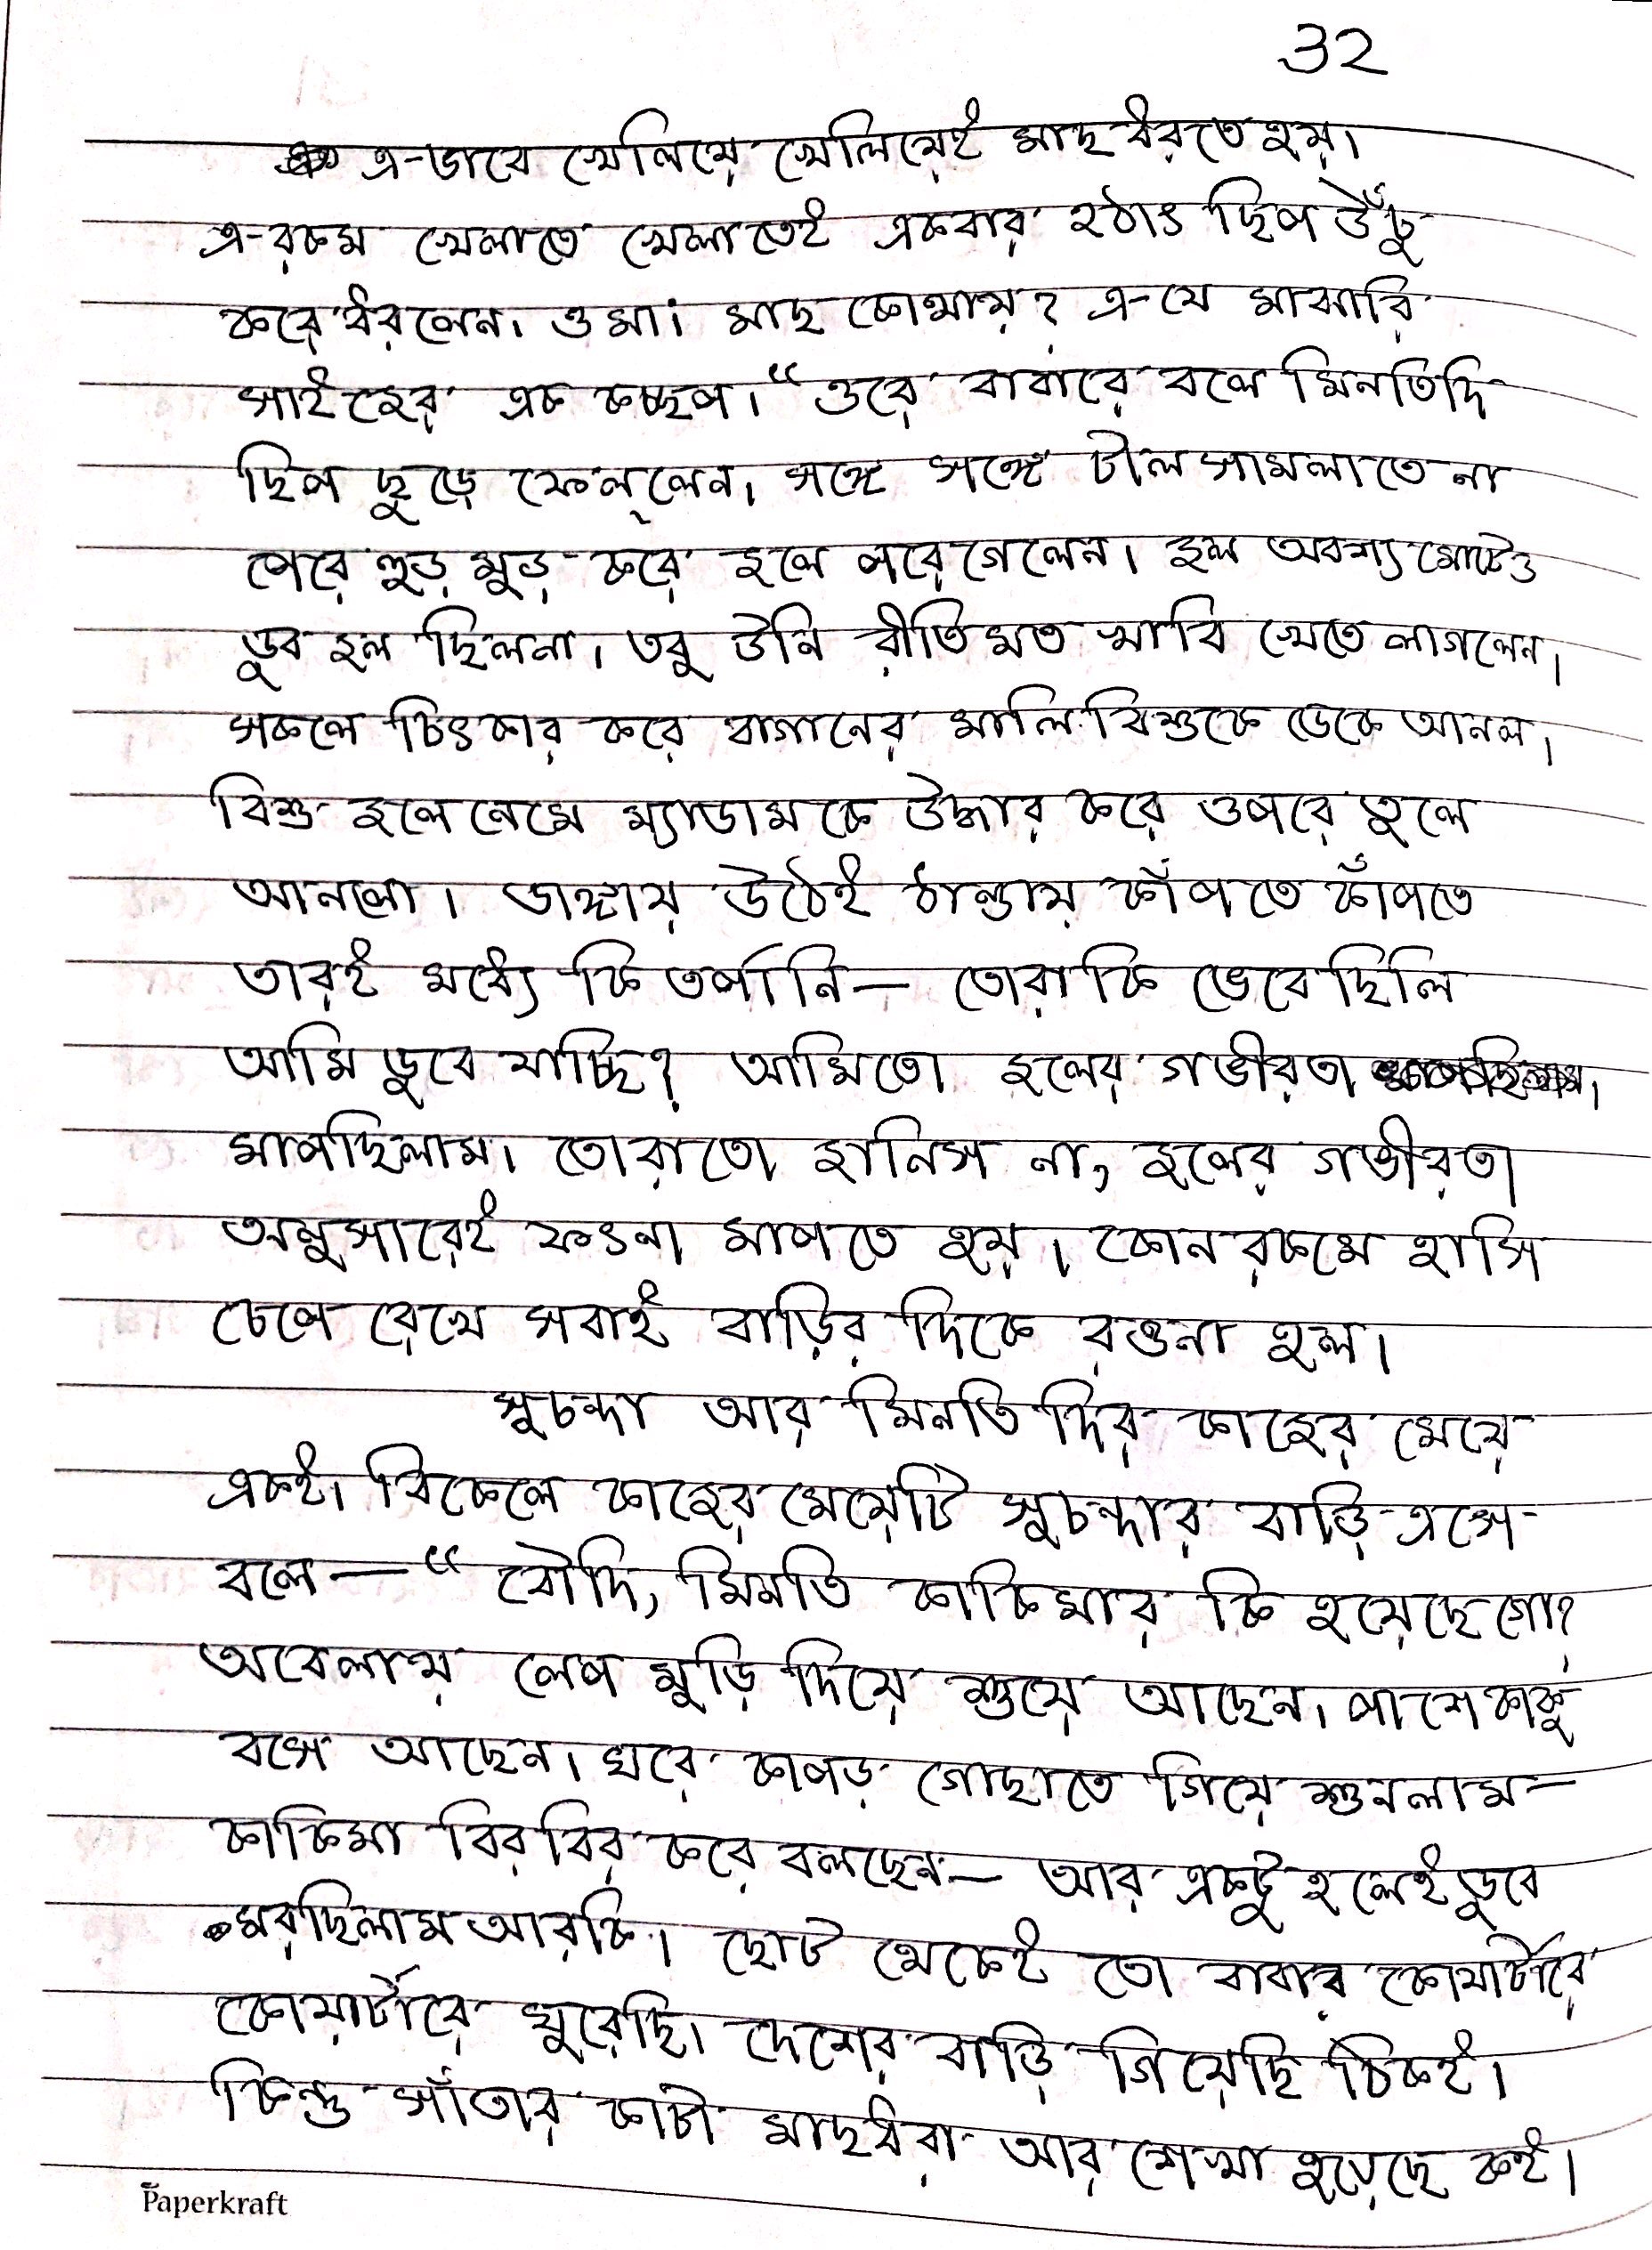 ৩২
এ-ভাবে খেলিয়ে খেলিয়েই মাছ ধরতে হয়।
এ-রকম খেলাতে খেলাতেই একবার হঠাৎ ছিপ উঁচু
করে ধরলেন। ওমা! মাছ কোথায়? এ-যে মাঝারি
সাইজের এক কচ্ছপ। “ওরে বাবারে বলে মিনতিদি
ছিপ ছুড়ে ফেল্‌লেন। সঙ্গে সঙ্গে টাল সামলাতে না
পেরে হুড়মুড় করে জলে পরে গেলেন। জল অবশ্য মোটেও
ডুব জল ছিলনা। তবু উনি রীতিমত খাবি খেতে লাগলেন।
সকলে চিৎকার করে বাগানের মালি বিশুকে ডেকে আনল।
বিশু জলে নেমে ম্যাডামকে উদ্ধার করে ওপরে তুলে
আনলো। ডাঙ্গায় উঠেই ঠান্ডায় কাঁপতে কাঁপতে
তারই মধ্যে কি তর্পানি— তোরা কি ভেবেছিলি
আমি ডুবে যাচ্ছি? আমিতো জলের গভীরতা
মাপছিলাম। তোরাতো জানিস না, জলের গভীরতা
অনুসারেই ফৎনা মাপতে হয়। কোন রকমে হাসি
চেপে রেখে সবাই বাড়ির দিকে রওনা হল।
সুচন্দা আর মিনতি দির কাজের মেয়ে
একই। বিকেলে কাজের মেয়েটি সুচন্দার বাড়ি এসে
বলে—“বৌদি, মিনতি কাকিমার কি হয়েছে গো?
অবেলায় লেপ মুড়ি দিয়ে শুয়ে আছেন। পাশে কাকু
বসে আছেন। ঘরে কাপড় গোছাতে গিয়ে শুনলাম—
কাকিমা বিরবির করে বলছেন— আর একটু হলেই ডুবে
মরছিলাম আরকি। ছোট থেকেই তো বাবার কোয়ার্টারে
কোয়ার্টারে ঘুরেছি। দেশের বাড়ি গিয়েছি ঠিকই।
কিন্তু সাঁতার কাটা মাছধরা আর শেখা হয়েছে কই।
Paperkraft